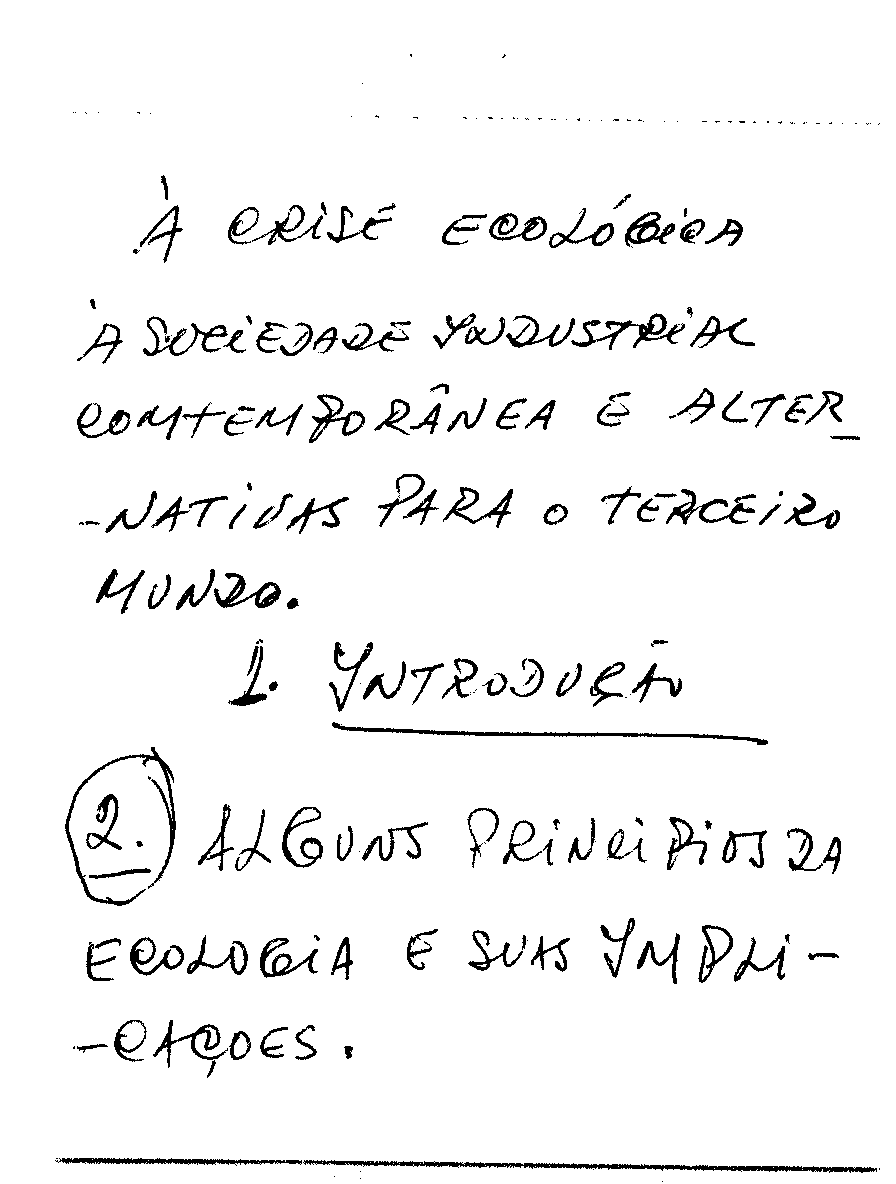 À CRISE ECOLÓGICA
À SOCIEDADE INDUSTRIAL
COMTEMPORÂNEA E ALTER_
-NATIVAS PARA O TERCEIRO
MUNDO.
1. INTRODUÇÃO
2. ALGUNS PRINCIPIOS DA
ECOLOGIA E SUAS IMPLI-
-CAÇOES.